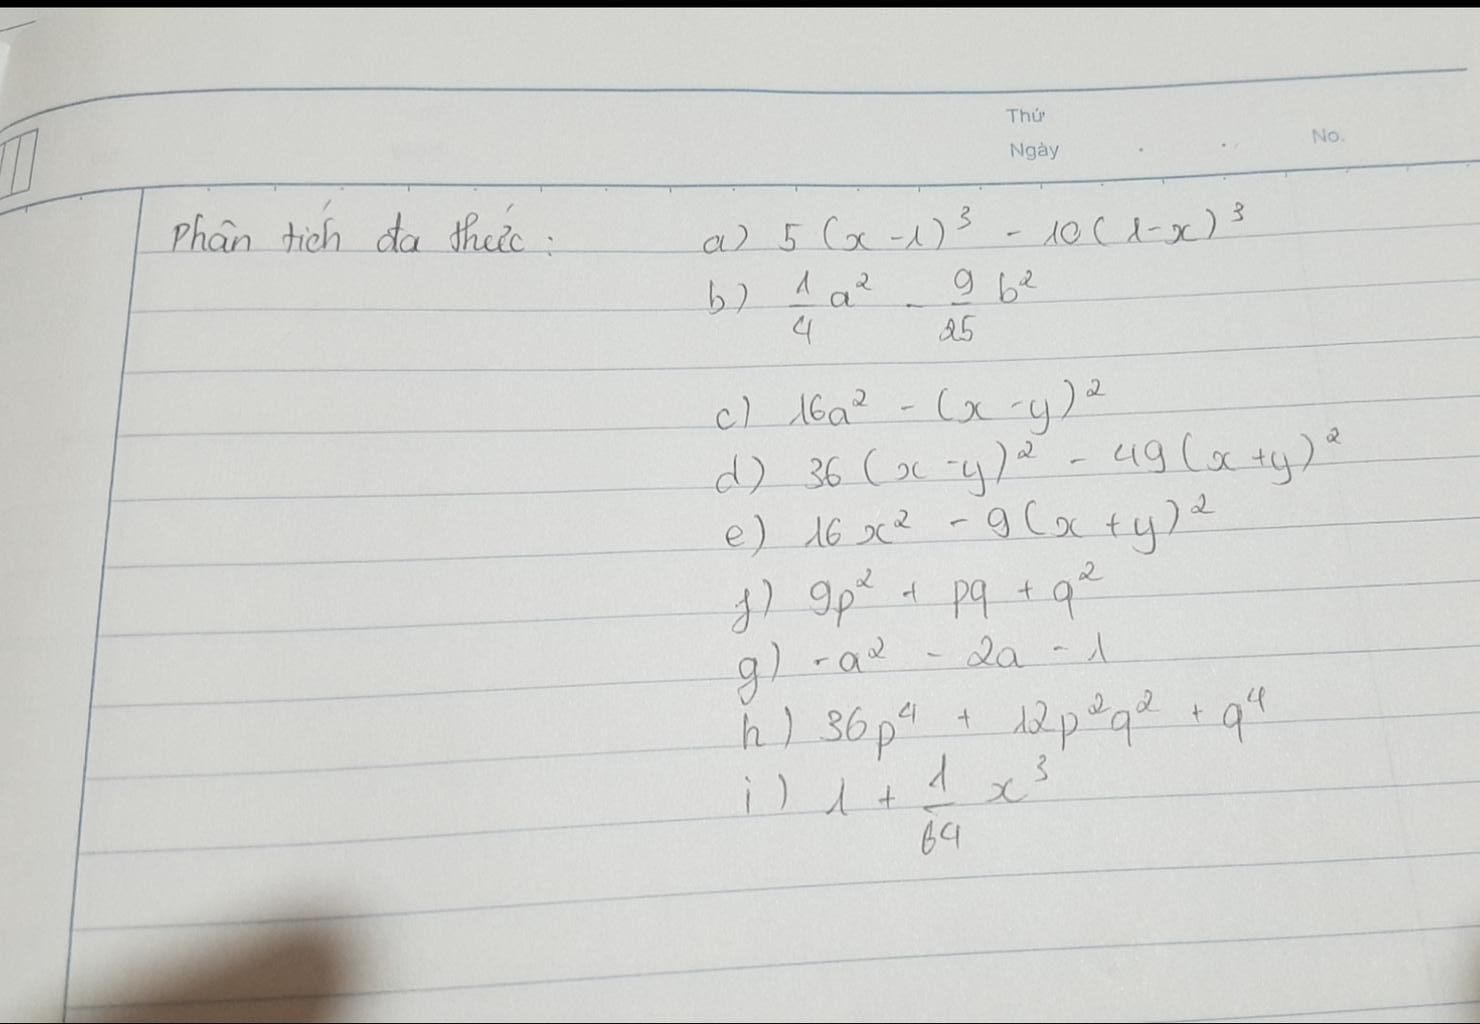 Thứ
Ngày No.
Phân tích đa thức : a) 5(x-1)³ - 10(1-x)³
b) 1/4 a² - 9/25 b²
c) 16a² - (x-y)²
d) 36(x-y)² - 49(x+y)²
e) 16x² - 9(x+y)²
f) 9p² + pq + q²
g) -a² - 2a - 1
h) 36p⁴ + 12p²q² + q⁴
i) 1 + 1/64 x³